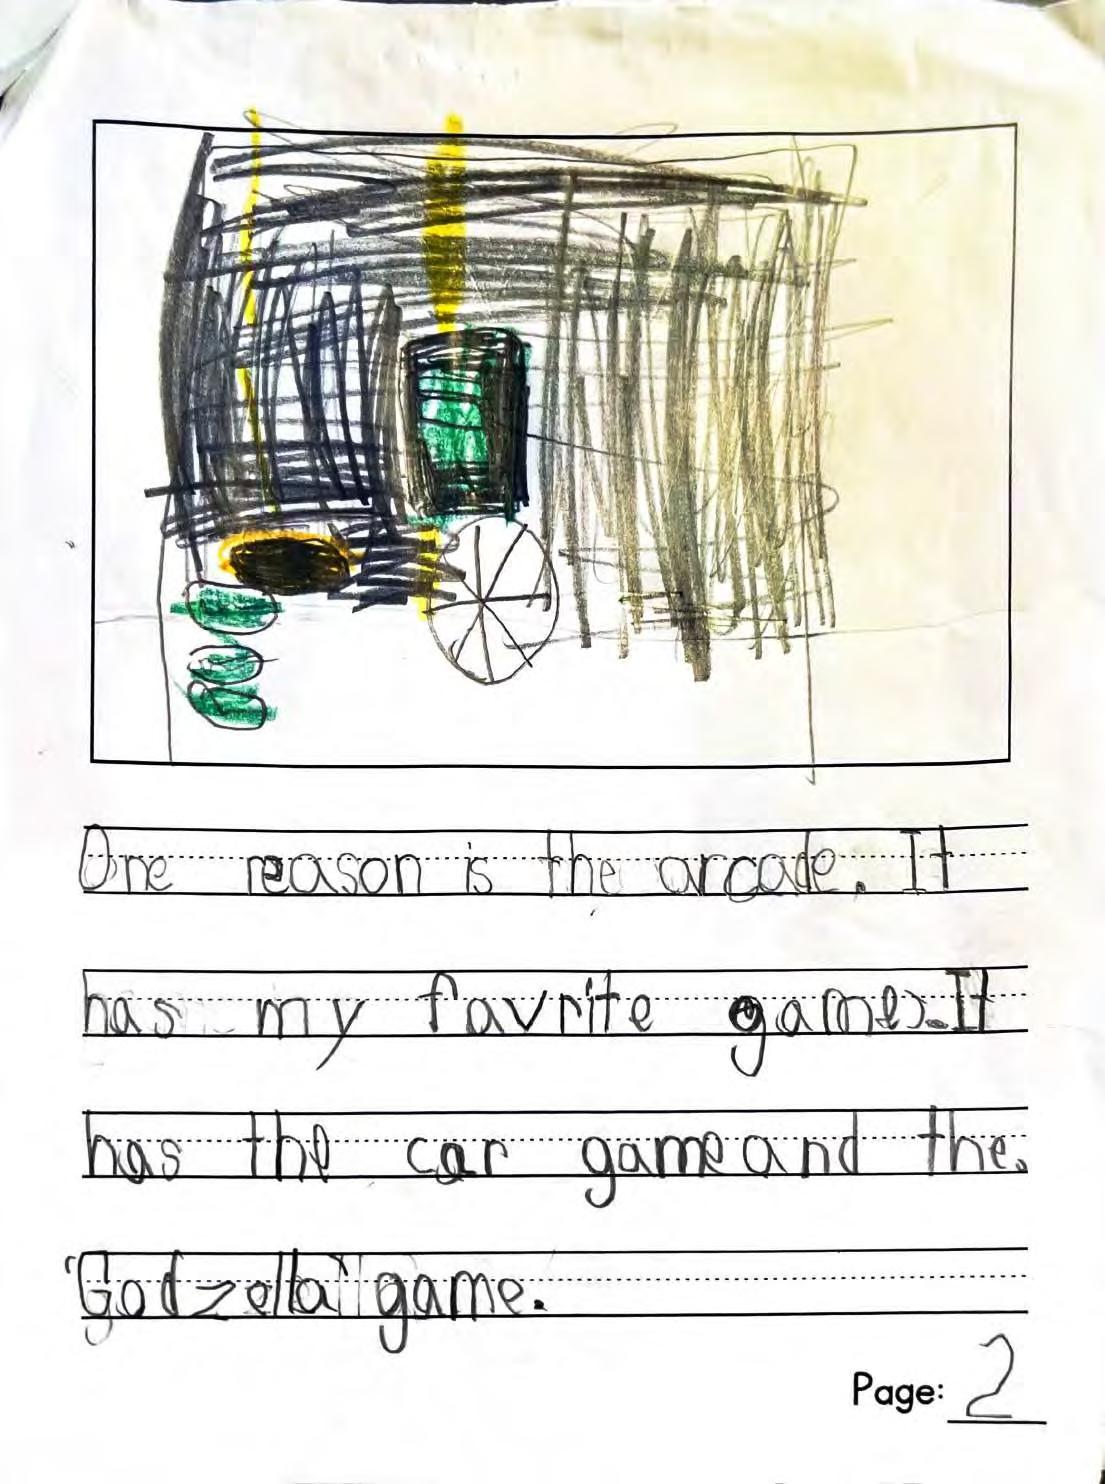 One reason is the arcade. It
has my favrite games. It
has the car game and the.
"Godzella" game.
Page: 2